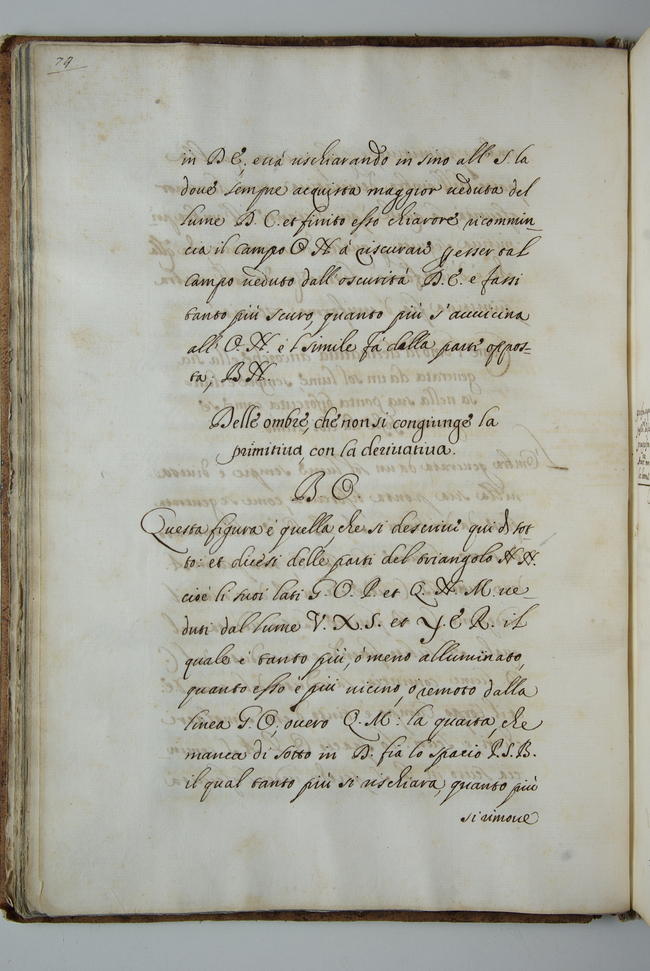 79
in D E. e uà rischiarando in sino all' S. la
doue sempre acquista maggior ueduta del
lume B. C. et finito esso chiarore ricommin-
cia il campo O N à riscurare per esser tal
campo ueduto dall' oscurità D. E. e farsi
tanto più scuro, quanto più s' auuicina
all' O. N e 'l simile fà dalla parte oppos-
ta, B N.
Delle ombre, che non si congiunge la
primitiua con la deriuatiua.
B O
Questa figura è quella che si descriue qui di sot
to: et dicesi delle parti del triangolo N N.
cioè li suoi lati G. O. P. et Q. N. M ue-
duti dal lume V. X. S. et Y. E R. il
quale è tanto più, ò meno alluminato,
quanto esso è più uicino, o remoto dalla
linea G. O, ouero Q. M: la quarta, che
manca di sotto in B. fia lo spacio P. S. B.
il qual tanto più si rischiara, quanto più
si rimoue